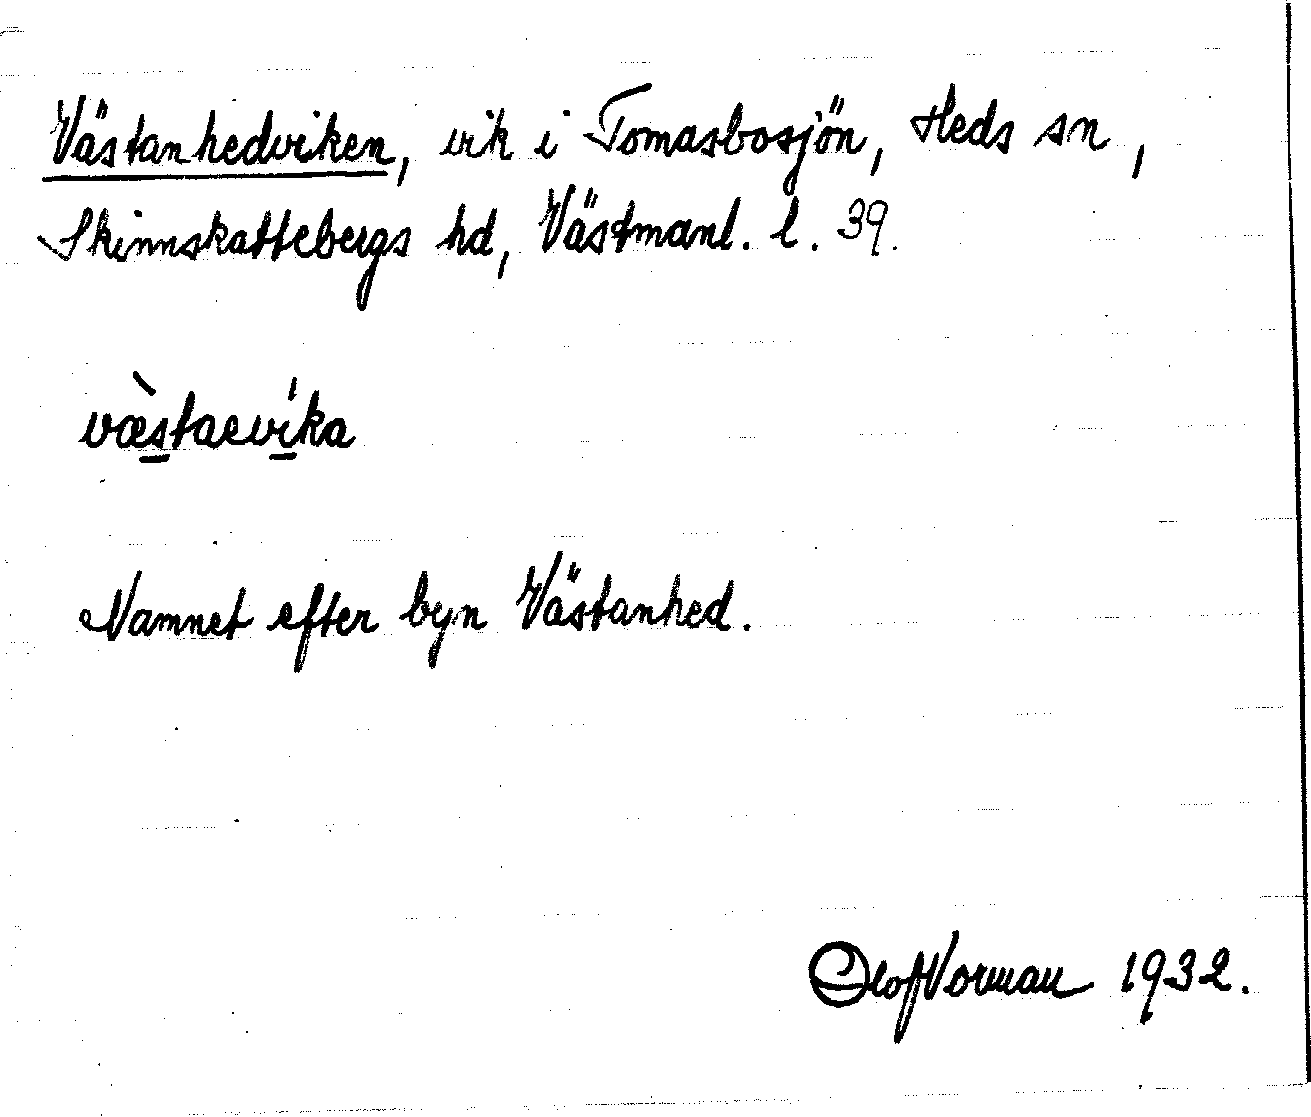 Västanhedviken, vik i Tomasbosjön, Heds sn,
Skinnskattebergs hd, Västmanl. l. 39.
væ̀staevíka
Namnet efter byn Västanhed.
Olof Norman 1932.